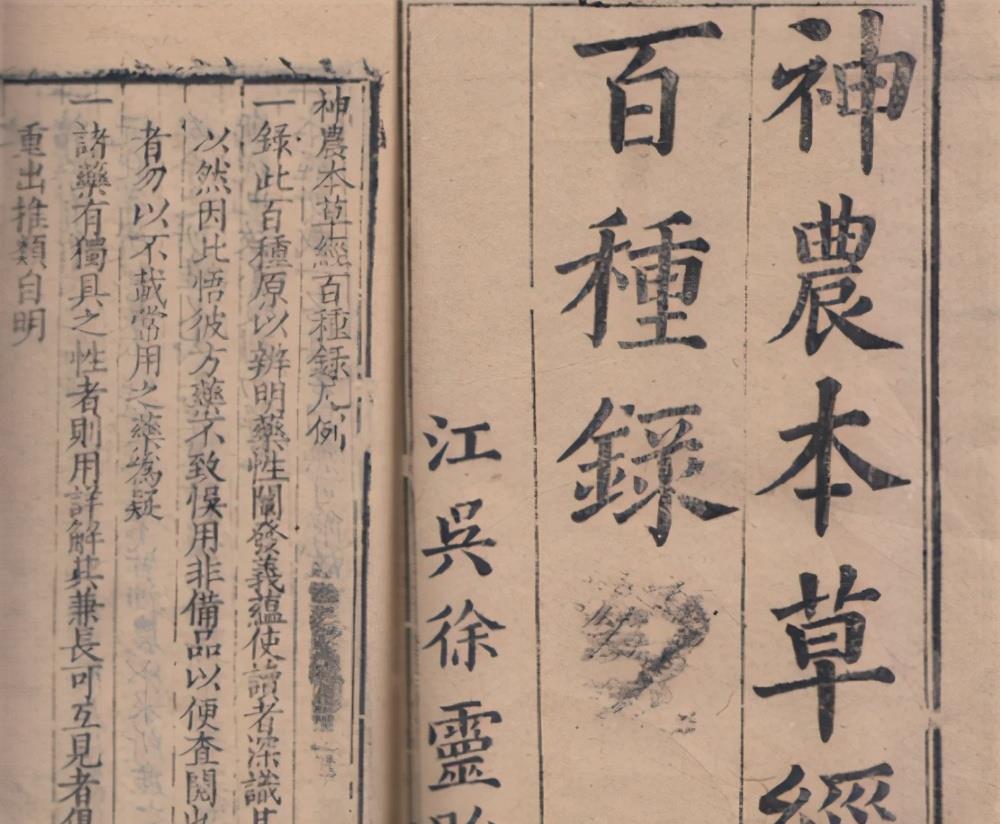 神農本草經
百種錄
江吳徐靈
神農本草經百種錄凡例
一錄此百種原以辨明藥性闡發義蘊使讀者深識其
以然因此悟彼方藥不致悞用非備品以便查閱
者勿以不載常用之藥為疑
一諸藥有獨具之性者則用詳解其兼長可互見者俱
重出推類自明